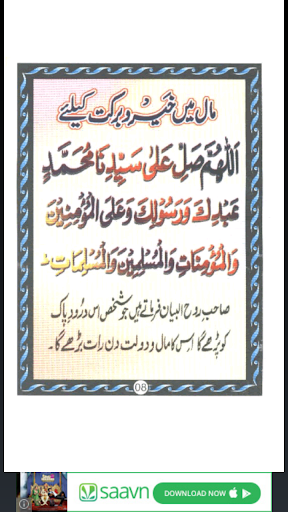 مال میں خیر و برکت کیلئے
اَللّٰهُمَّ صَلِّ عَلٰى سَيِّدِنَا مُحَمَّدٍ
عَبْدِكَ وَرَسُوْلِكَ وَعَلَى الْمُؤْمِنِيْنَ
وَالْمُؤْمِنَاتِ وَالْمُسْلِمِيْنَ وَالْمُسْلِمَاتِ ط
صاحبِ روح البیان فرماتے ہیں جو شخص اس درود پاک
کو پڑھے گا اس کا مال و دولت دن رات بڑھے گا۔
08
saavn
DOWNLOAD NOW